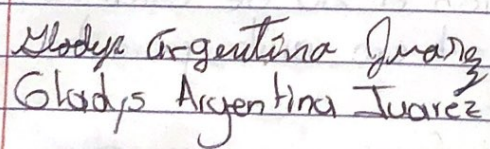 Gladys Argentina Juarez
Gladys Argentina Juarez